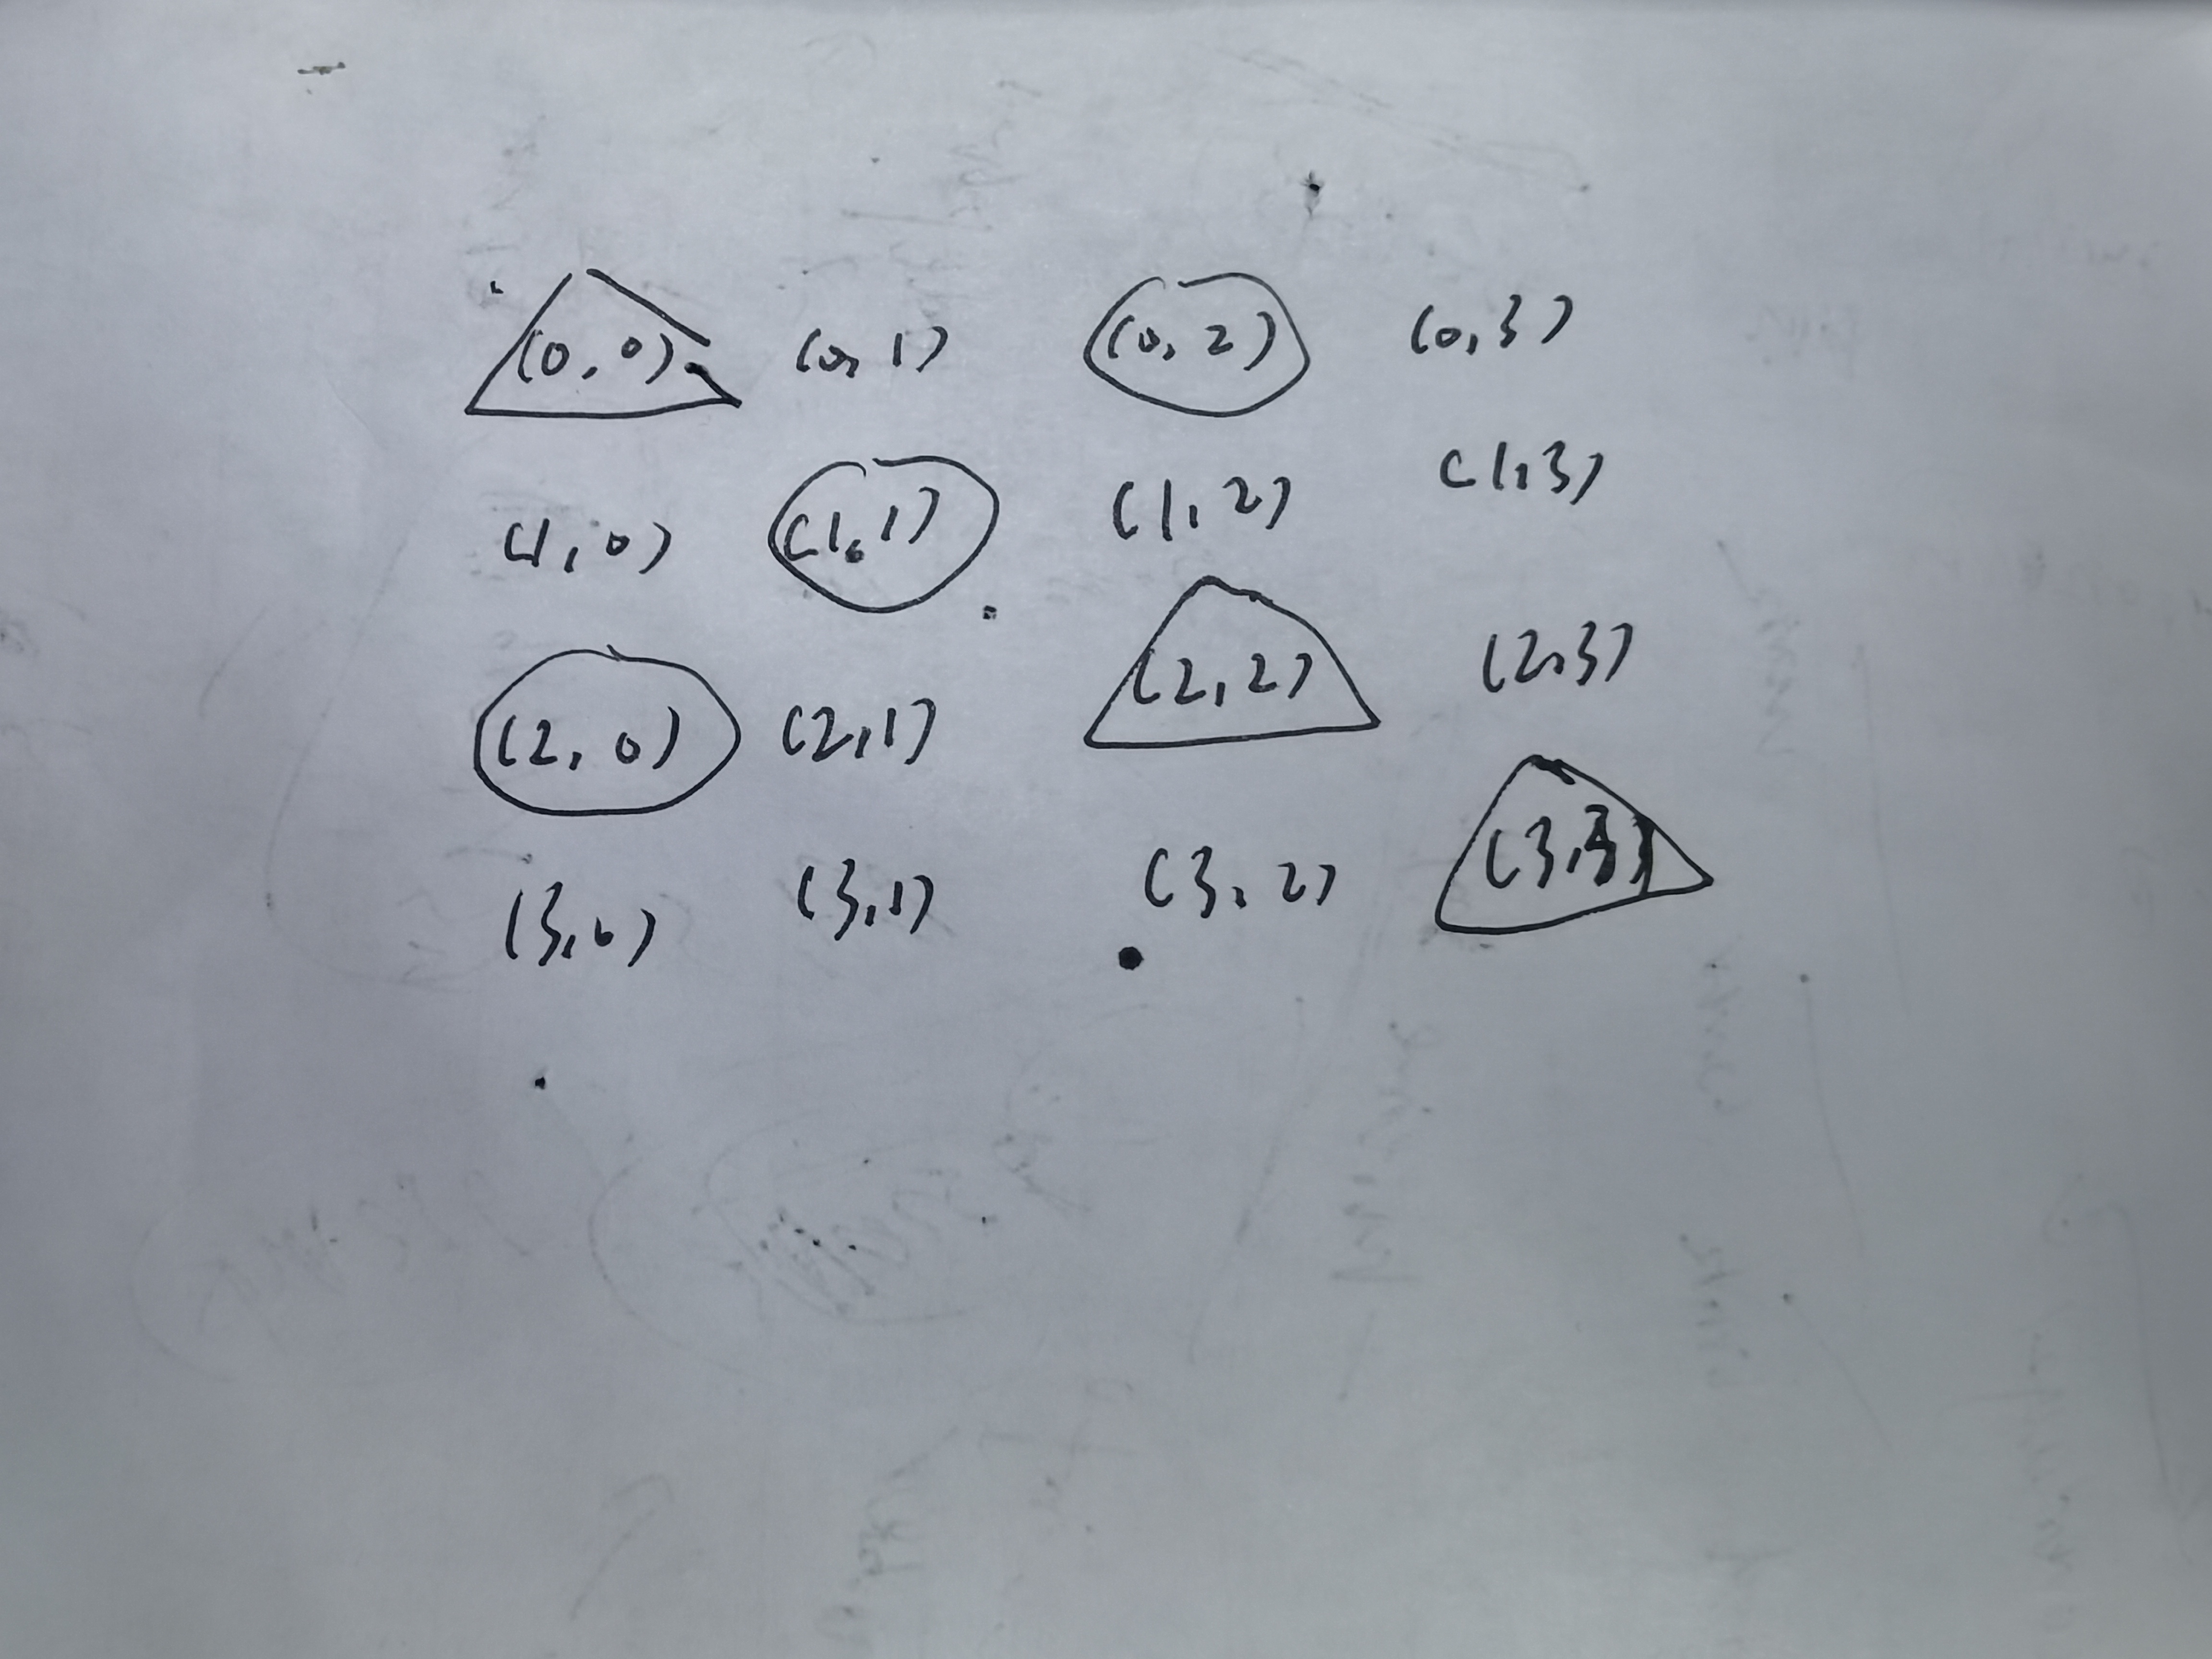 (0,0) (0,1) (0,2) (0,3)
(1,0) (1,1) (1,2) (1,3)
(2,0) (2,1) (2,2) (2,3)
(3,0) (3,1) (3,2) (3,3)